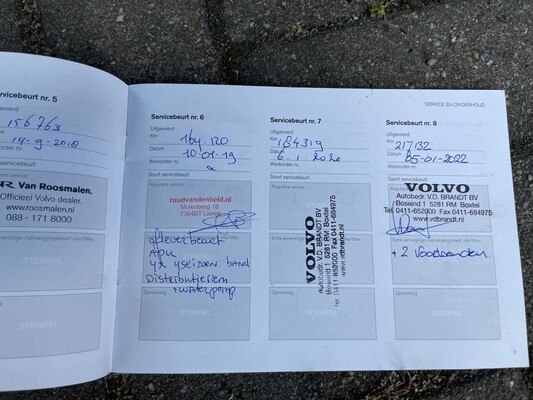 SERVICE EN ONDERHOUD
Servicebeurt nr. 5
156763
14-9-2018
Van Roosmalen.
Officieel Volvo dealer.
www.roosmalen.nl
088 - 171 8000
STEMPEL
Servicebeurt nr. 6
Uitgevoerd
Km 164.120
Datum 10-01-19
Werkorder nr.
Soort servicebeurt
Reguliere service
ruudvandenbeld.nl
Molenberg 18
7364BT Lieren
afleverbeurt
APK
4x 4seizoen. band
Distributieriem
+waterpomp
STEMPEL
Servicebeurt nr. 7
Uitgevoerd
Km 184319
Datum 6.1 2020
Werkorder nr.
Soort servicebeurt
Reguliere service
VOLVO
Autobedr. V.D. BRANDT BV
Boseind 1 5281 RM Boxtel
Tel. 0411-652000 Fax 0411-684975
www.vdbrandt.nl
Opmerking
Servicebeurt nr. 8
Uitgevoerd
Km 217132
Datum 05-01-2022
Werkorder nr.
Soort servicebeurt
Reguliere service
VOLVO
Autobedr. V.D. BRANDT BV
Boseind 1 5281 RM Boxtel
Tel. 0411-652000 Fax 0411-684975
www.vdbrandt.nl
+ 2 Voorbanden.
Opmerking
STEMPEL